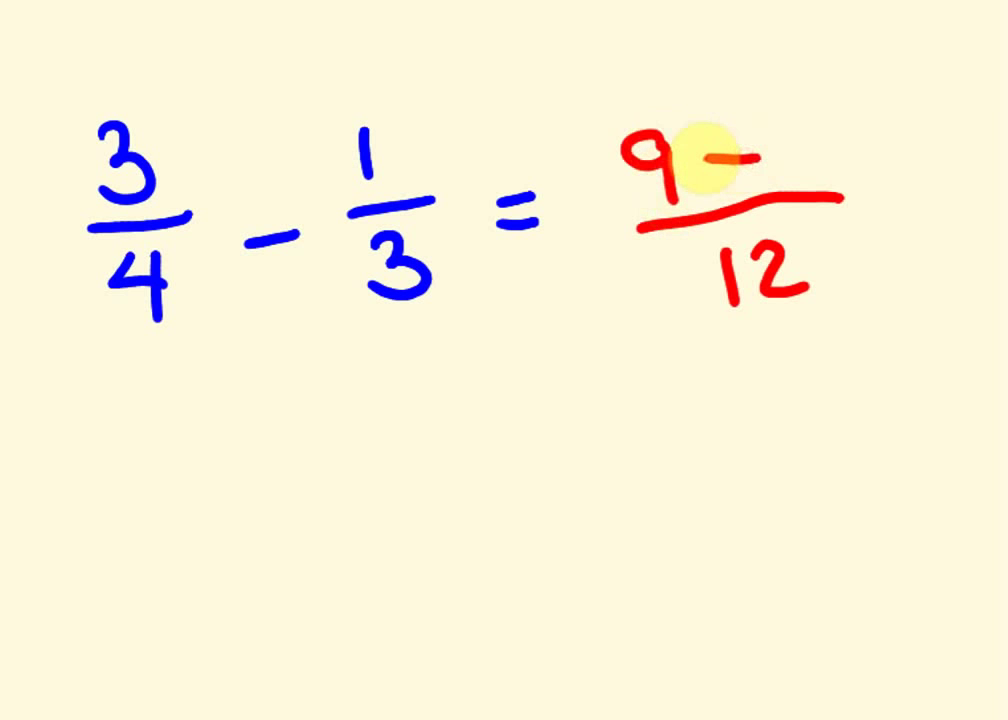 3/4 - 1/3 = 9 -/12